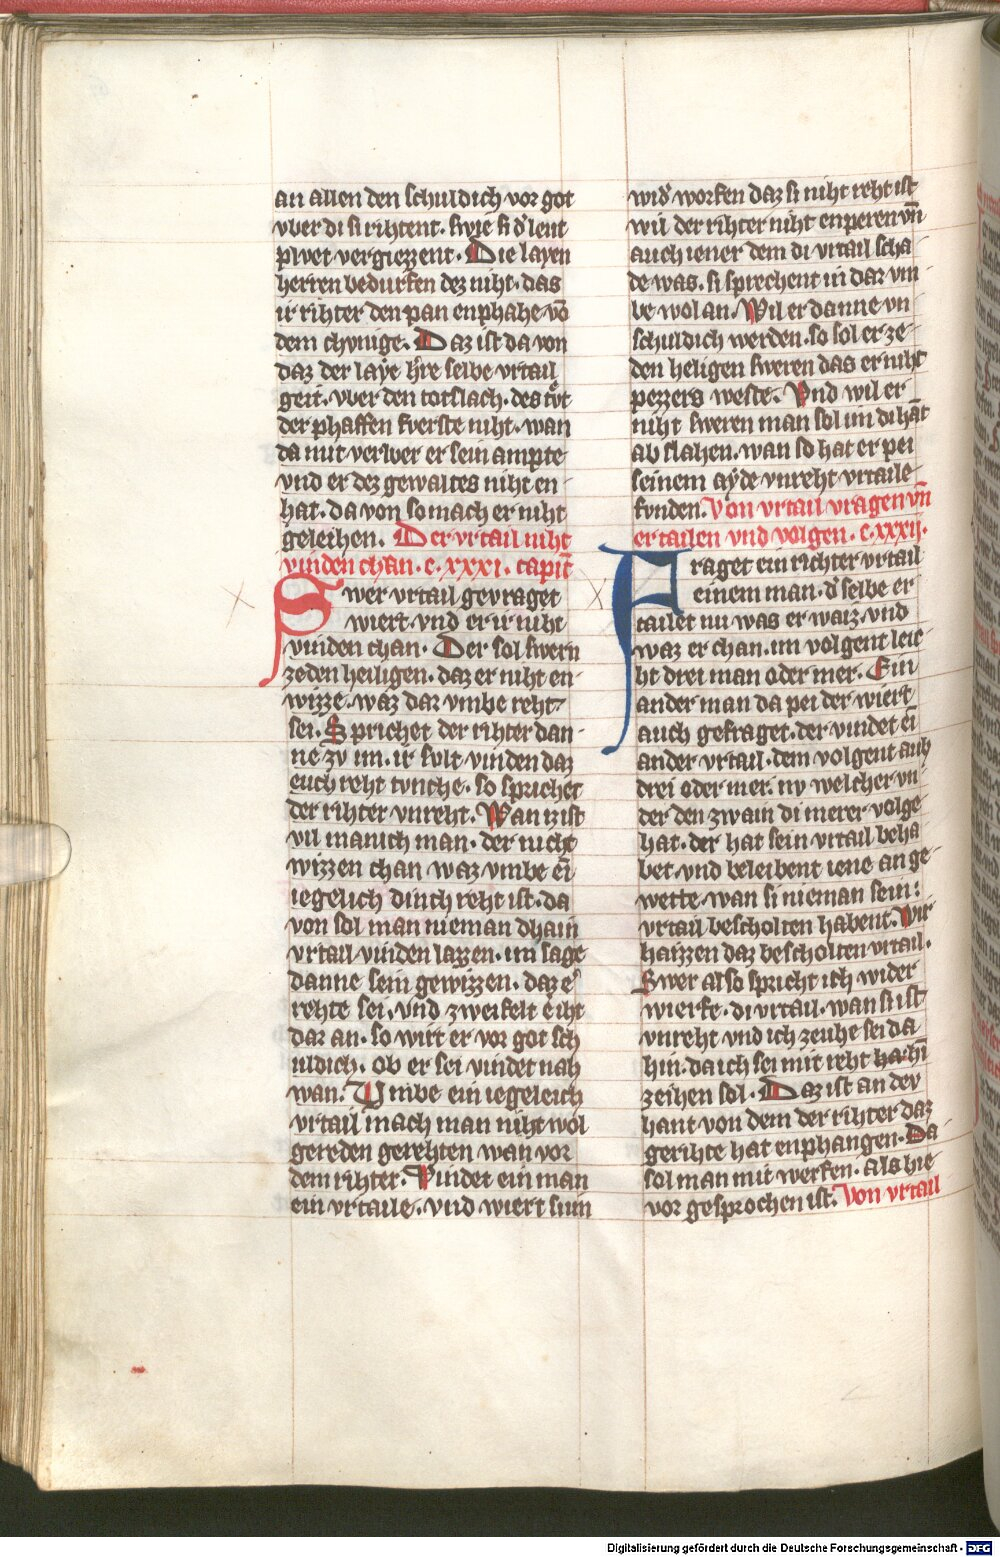 an allen den schuldich vor got
vber di si rihtent. swie si d̉ leut
plvet vergiezzent. Die layen
herren bedurfen dez niht. das
ir rihter den pan enphahe vō
dem chvnige. Daz ist da von
daz der laye h̉re selbe vrtail
geit. vber den totslach. des tůt
der phaffen fverste niht. wan
da mit verlver er sein ampte
vnd er dez gewaltes niht en
hat. da von so mach er niht
geleihen. Der vrtail niht
vinden chan. c. xxxi. capit̄
Swer vrtail gevraget
wiert. vnd er ir niht
vinden chan. Der sol swern
zeden heiligen. daz er niht en
wizze. waz dar vmbe reht
sei. Sprichet der rihter dan
ne zv im. ir svlt vinden daz
euch reht tvnche. so sprichet
der rihter vnreht. Wan iz ist
vil manich man. der nicht
wizzen chan waz vmbe ei̅
iegelich dinch reht ist. da
von sol man nieman dhain
vrtail vinden lazzen. im sage
danne sein gewizzen. daz e̓
rehte sei. vnd zweifelt e̓ iht
dar an. so wirt er vor got sch
uldich. ob er sei vindet nah
wan. Vmbe ein iegeleich
vrtail mach man niht wol
gereden gerehten wan vor
dem rihter. Vindet ein man
ein vrtaile. vnd wiert sium
wid̉ worfen daz si niht reht ist
wil der rihter niht enperen vn̄
auch iener dem di vrtail scha
de was. si sprechent in dar vm
be wol an. Wil er danne vn
schuldich werden. so sol er ze
den heligen sweren das er niht
pezzers weste. Vnd wil er
niht sweren man sol im di hāt
ab slahen. wan so hat er pei
seinem ayde vnreht vrtaile
fvnden. Von vrtail vragen vn̄
ertailen vnd volgen. c. xxxij.
Fraget ein richter vrtail
einem man. d̉ selbe er
tailet im was er waiz. vnd
waz er chan. im volgent leie
ht drei man oder mer. Ein
ander man da pei der wiert
auch gefraget. der vindet ei̅
ander vrtail. dem volgent auh
drei oder mer. nv welcher vn
der den zwain di merer volge
hat. der hat sein vrtail beha
bet. vnd beleibent iene an ge
wette. wan si nieman sein:
vrtail bescholten habent. Wir
haizzen daz bescholten vrtail.
Swer also spricht ich wider
wierfe. di vrtail. wan si ist
vnreht vnd ich zeuhe sei da
hin. da ich sei mit reht ha hi̅
zeihen sol. Daz ist an der
hant von dem der rihter daz
gerihte hat enphangen. Da
sol man mit werfen. als hie
vor gesprochen ist. Von vrtail
Digitalisierung gefördert durch die Deutsche Forschungsgemeinschaft - DFG